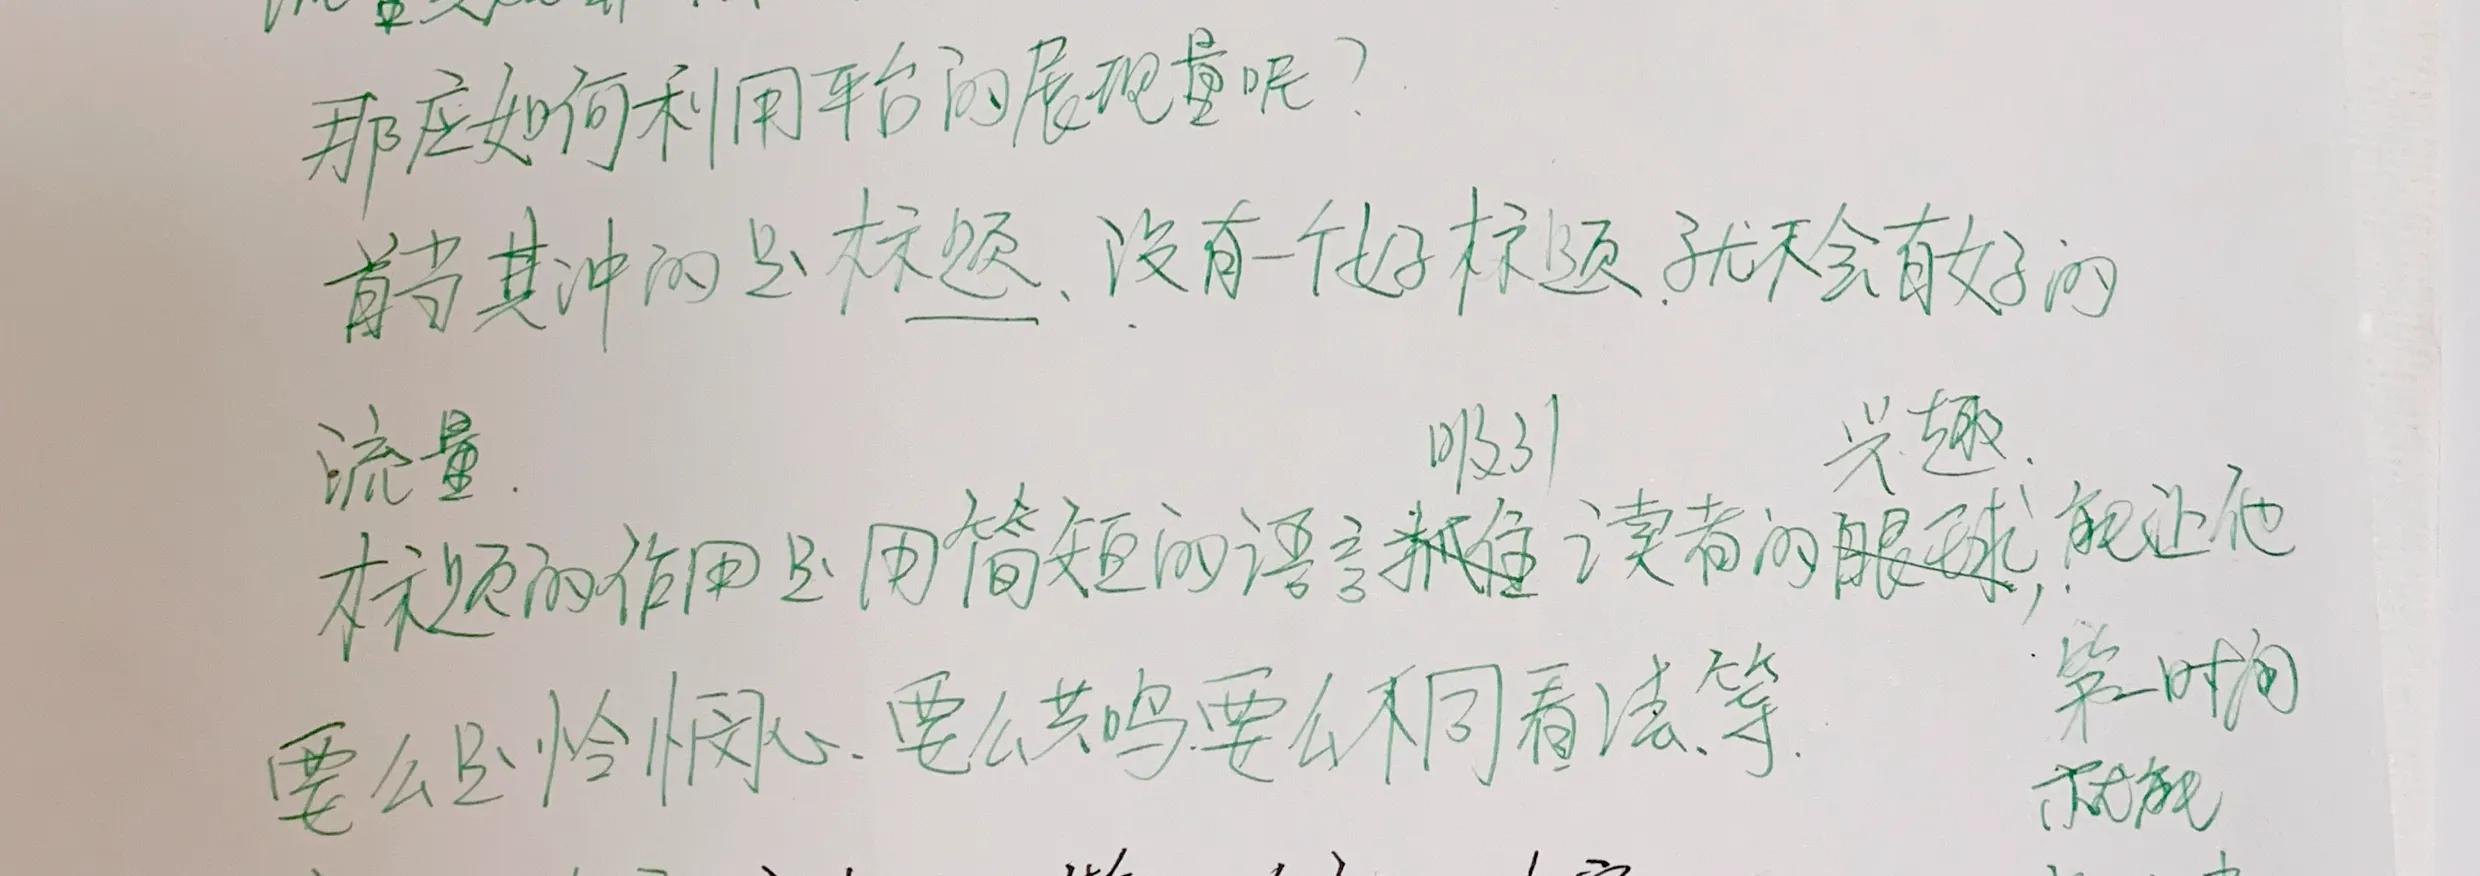 那应如何利用平台的展现量呢？
首当其冲的是标题、没有一个好标题.就不会有好的
流量.
吸引 兴趣.
标题的作用是用简短的语言抓住读者的眼球,能让他
第一时间
就能
要么是怜悯心、要么共鸣要么不同看法、等.